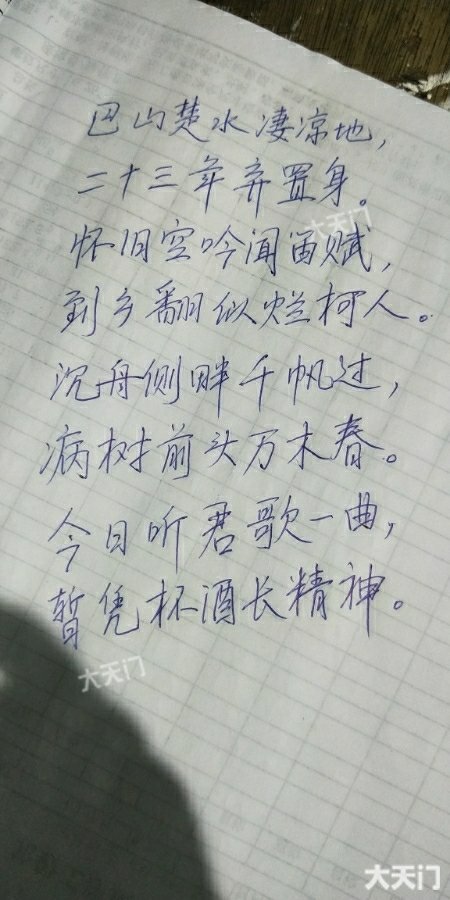 巴山楚水凄凉地，
二十三年弃置身。
怀旧空吟闻笛赋，
到乡翻似烂柯人。
沉舟侧畔千帆过，
病树前头万木春。
今日听君歌一曲，
暂凭杯酒长精神。
大天门
大天门
大天门